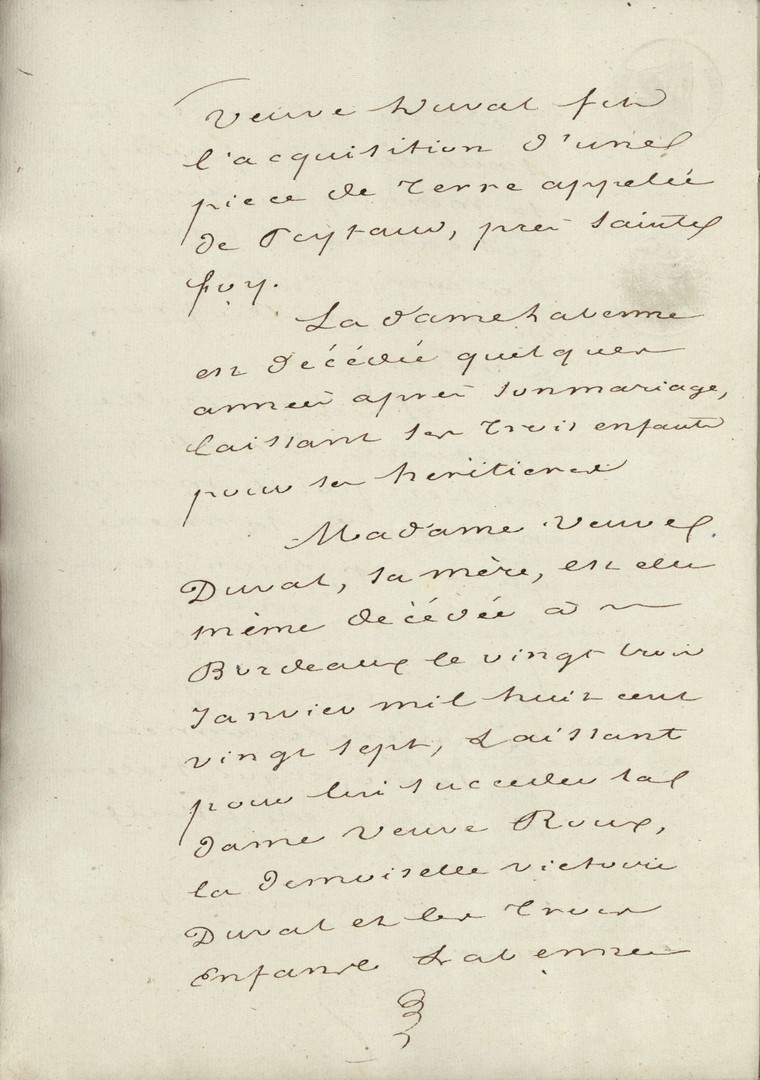 Veuve Duval fit
l'acquisition d'une
piece de Terre appelée
de Peytau, près Sainte
foy.
La dame Labenne
est décédée quelques
années après son mariage,
laissant ses trois enfants
pour ses heritiers
Madame Veuve
Duval, sa mère, est elle
même décédée à
Bordeaux le vingt trois
Janvier mil huit cent
vingt sept, Laissant
pour lui succeder la
dame Veuve Roux,
la demoiselle victoire
Duval et les trois
Enfans Labenne